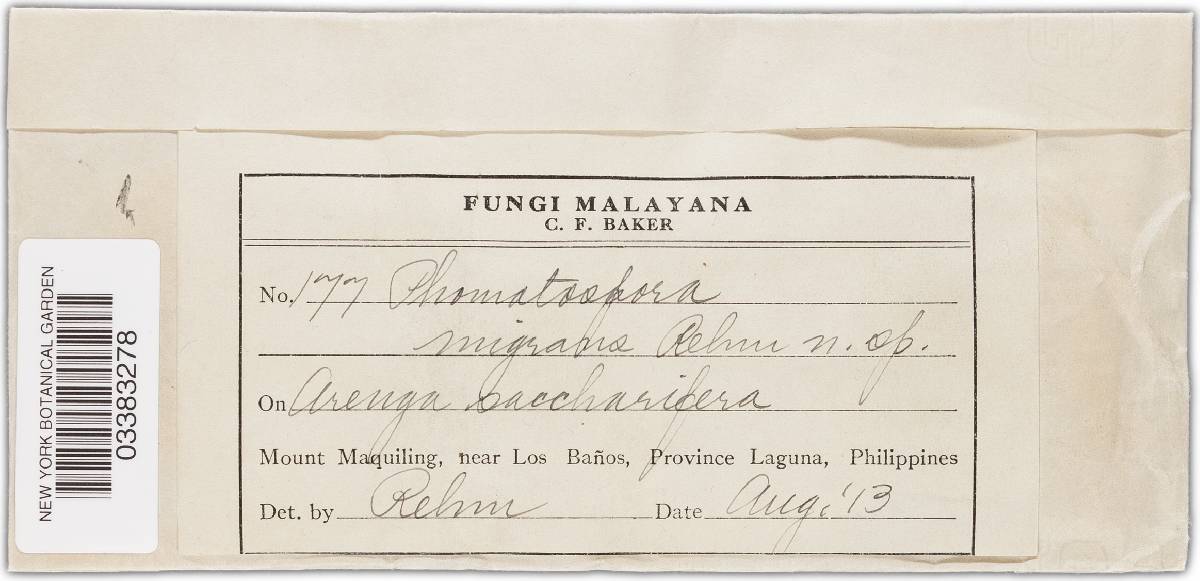 FUNGI MALAYANA
C. F. BAKER
No. 177 Phomatospora
migrans Rehm n. sp.
On Arenga saccharifera
Mount Maquiling, near Los Baños, Province Laguna, Philippines
Det. by Rehm Date Aug. '13
NEW YORK BOTANICAL GARDEN
03383278